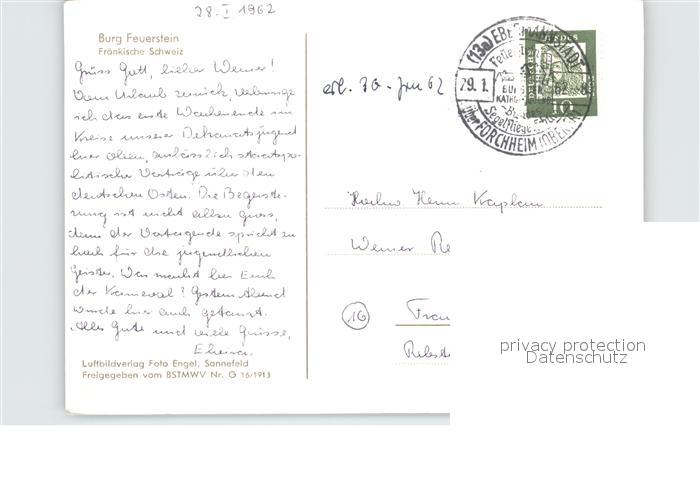 28. I 1962
Burg Feuerstein
Fränkische Schweiz
Grüss Gott, lieber Werner!
Vom Urlaub zurück, verbringe
ich das erste Wochenende im
Kreise unserer Dekanatsjugend
hier oben, anlässlich staatspo-
litischer Vorträge über den
deutschen Osten. Die Begeiste-
rung ist nicht allzu gross,
denn der Vortragende spricht zu
hoch für die jugendlichen
Geister. Was macht bei Euch
der Karneval? Gestern Abend
wurde hier auch getanzt.
Alles Gute und viele Grüsse,
Luftbildverlag Foto Engel, Sonnefeld
Freigegeben vom BSTMWV Nr. G 16/1913
erh. 30. Jan 62
(13a) EBERMANNSTADT
29. 1. 62 - 8
über FORCHHEIM (OBERFR)
10
Hochw. Herrn Kaplan
Werner Re
16
Fran
Rebst
privacy protection
Datenschutz